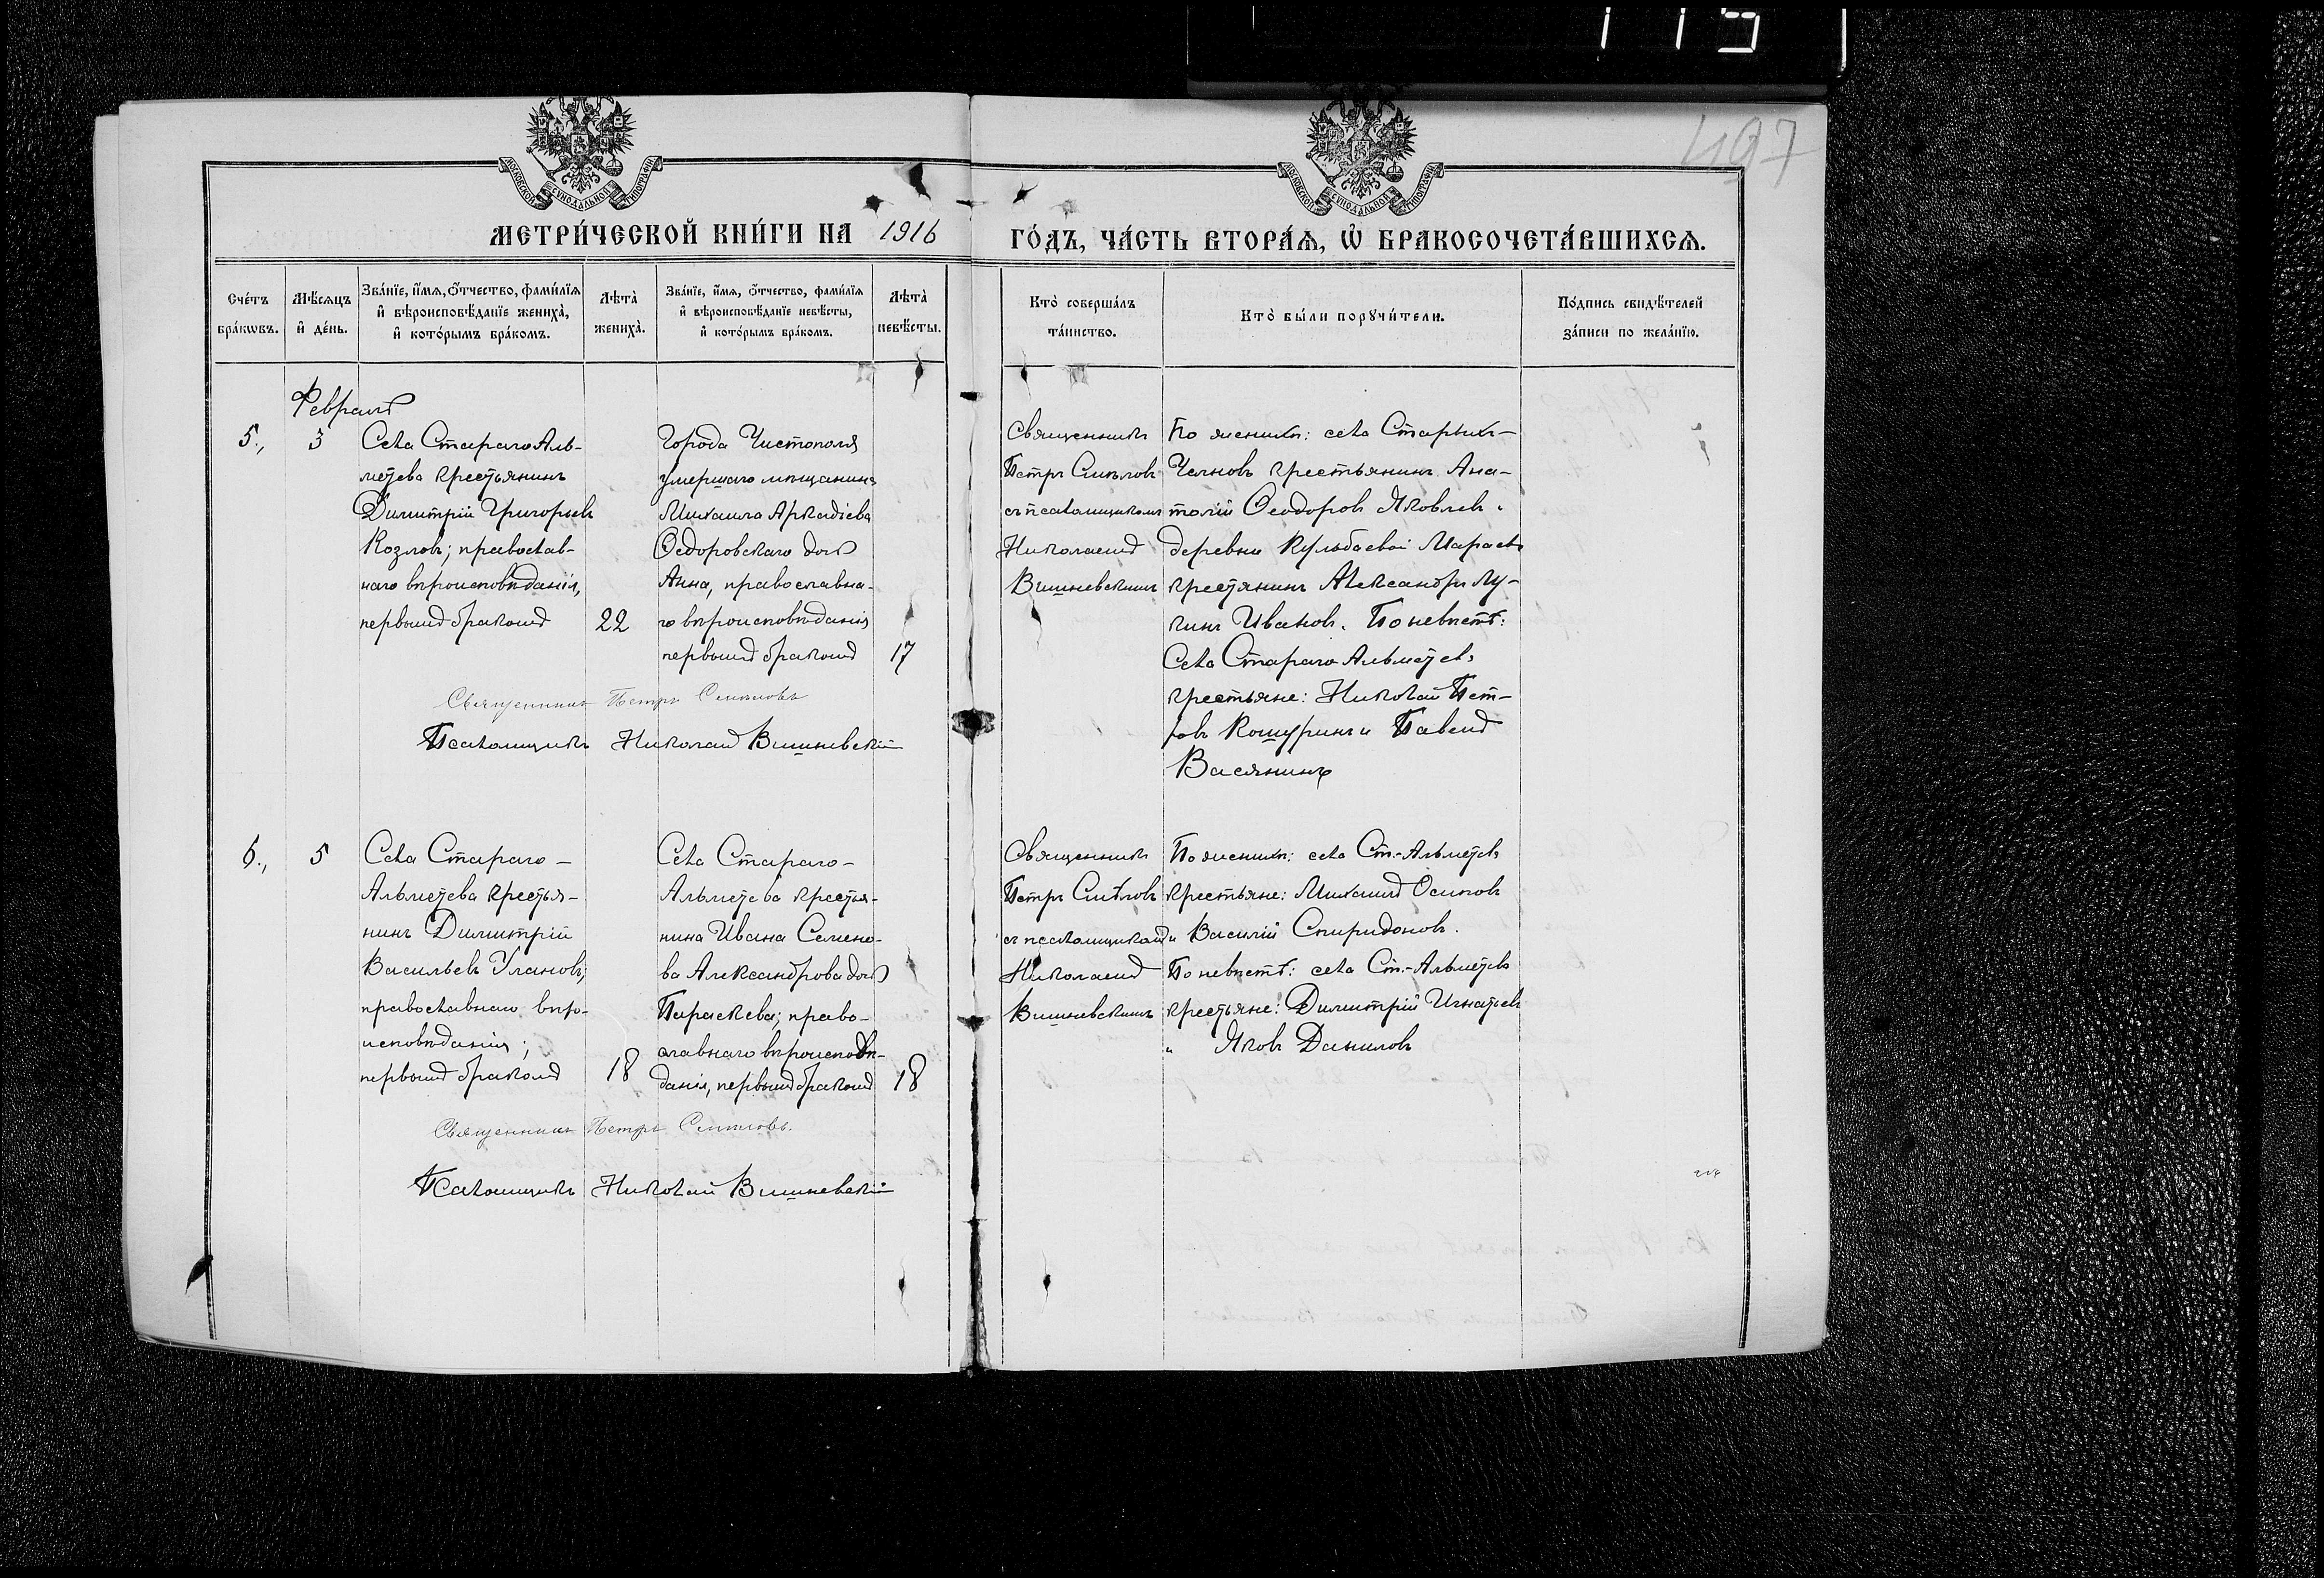 115
497
МОСКОВСКОЙ СѴНОДАЛЬНОЙ ТИПОГРАФІИ
МОСКОВСКОЙ СѴНОДАЛЬНОЙ ТИПОГРАФІИ
МЕТРИ́ЧЕСКОЙ КНИ́ГИ НА 1916 ГО́ДЪ, ЧА́СТЬ ВТОРА́Ѧ, Ѽ БРАКОСОЧЕТА́ВШИХСѦ.
Сче́тъ
бра́кѡвъ.
Мѣ́сѧцъ
и҆ де́нь.
Зва́нїе, и҆́мѧ, ѻ҆́тчество, фами́лїѧ
и҆ вѣроисповѣ́данїе жениха̀,
и҆ кото́рымъ бра́комъ.
Лѣта̀
жениха̀.
Зва́нїе, и҆́мѧ, ѻ҆́тчество, фами́лїѧ
и҆ вѣроисповѣ́данїе невѣ́сты,
и҆ кото́рымъ бра́комъ.
Лѣта̀
невѣ́сты.
Кто̀ соверша́лъ
та́инство.
Кто̀ бы́ли порꙋчи́тели.
По́дпись свидѣ́телей
за́писи по жела́нїю.
Февраль
5.,
3
Села Стараго Аль-
метева крестьянинъ
Димитрій Григорьевъ
Козловъ; православ-
наго вѣроисповѣданія,
первымъ бракомъ
22
Города Чистополя
умершаго мѣщанина
Михаила Аркадіева
Ѳедоровскаго дочь
Анна, православна-
го вѣроисповѣданія
первымъ бракомъ
17
Священникъ
Петръ Смѣловъ
съ псаломщикомъ
Николаемъ
Вишневскимъ
По женихѣ: села Старыхъ-
Челновъ крестьянинъ Ана-
толій Ѳеодоровъ Яковлевъ и
деревни Кульбаевой Мараевъ
крестьянинъ Александръ Лу-
кинъ Ивановъ. По невѣстѣ:
Села Стараго Альметева
крестьяне: Николай Пет-
ровъ Кошуринъ и Павелъ
Васянинъ
Священникъ Петръ Смѣловъ
Псаломщикъ Николай Вишневскій
6.,
5
Села Стараго-
Альметева крестья-
нинъ Димитрій
Васильевъ Улановъ;
православнаго вѣро-
исповѣданія;
первымъ бракомъ
18
Села Стараго-
Альметева крестья-
нина Ивана Семено-
ва Александрова дочь
Параскева; право-
славнаго вѣроисповѣ-
данія, первымъ бракомъ
18
Священникъ
Петръ Смѣловъ
съ псаломщикомъ
Николаемъ
Вишневскимъ
По женихѣ: села Ст.-Альметева
крестьяне: Михаилъ Осиповъ
и Василій Спиридоновъ.
По невѣстѣ: села Ст.-Альметева
крестьяне: Димитрій Игнатьевъ
и Яковъ Даниловъ
Священникъ Петръ Смѣловъ.
Псаломщикъ Николай Вишневскій